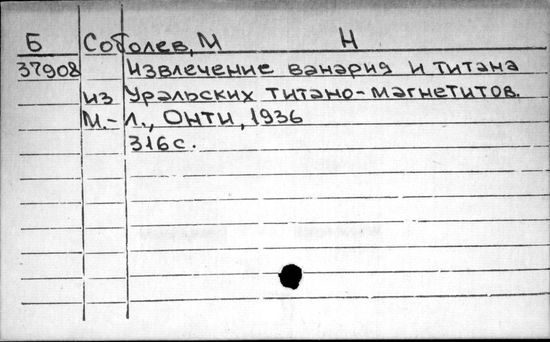 Б Соболев, М Н
37908 Извлечение ванадия и титана
из Уральских титано-магнетитов.
М.-Л., ОНТИ, 1936
316 с.